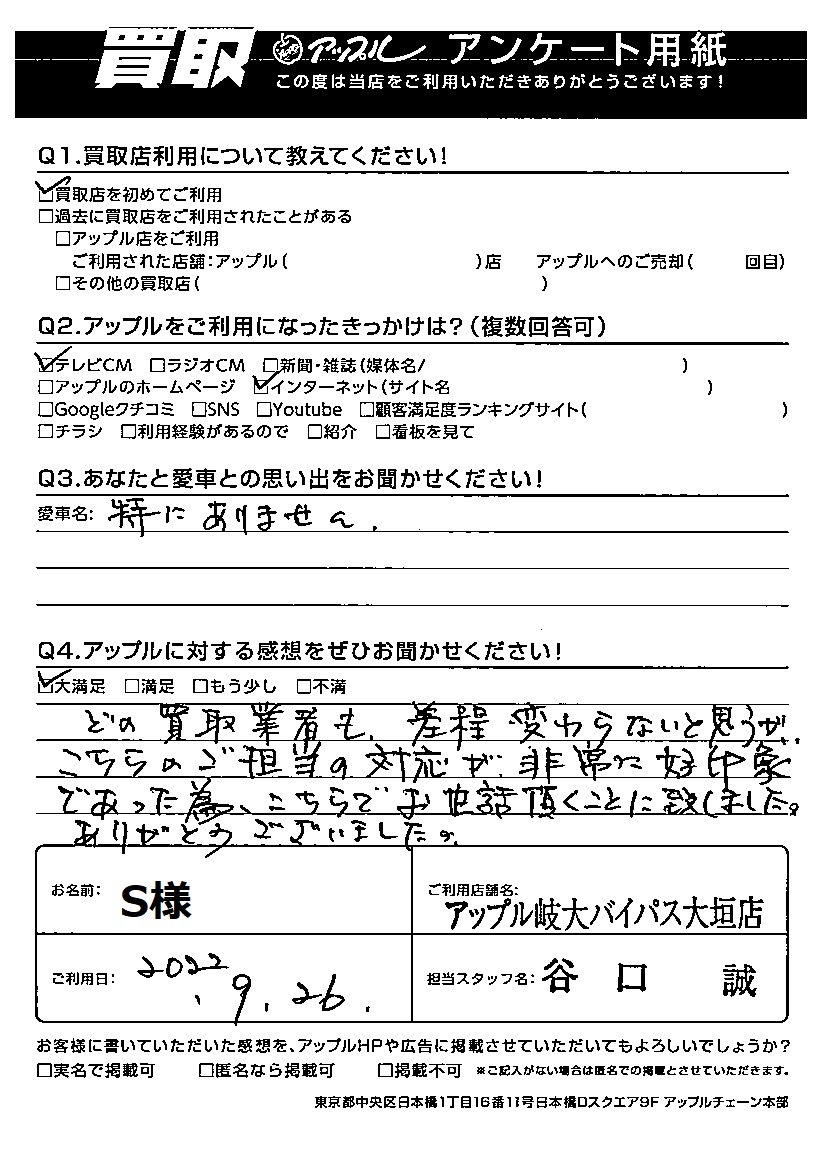 買取 アップル アンケート用紙
この度は当店をご利用いただきありがとうございます!
Q1.買取店利用について教えてください!
☑買取店を初めてご利用
□過去に買取店をご利用されたことがある
□アップル店をご利用
ご利用された店舗:アップル( )店 アップルへのご売却( 回目)
□その他の買取店( )
Q2.アップルをご利用になったきっかけは?(複数回答可)
☑テレビCM □ラジオCM □新聞・雑誌(媒体名/ )
□アップルのホームページ ☑インターネット(サイト名 )
□Googleクチコミ □SNS □Youtube □顧客満足度ランキングサイト( )
□チラシ □利用経験があるので □紹介 □看板を見て
Q3.あなたと愛車との思い出をお聞かせください!
愛車名: 特にありません.
Q4.アップルに対する感想をぜひお聞かせください!
☑大満足 □満足 □もう少し □不満
どの買取業者も、差程変わらないと思うが、
こちらのご担当の対応が非常に好印象
であった為、こちらでお世話頂くことに致しました。
ありがとうございました。
お名前: S様
ご利用店舗名:
アップル岐大バイパス大垣店
ご利用日: 2022.9.26.
担当スタッフ名: 谷口 誠
お客様に書いていただいた感想を、アップルHPや広告に掲載させていただいてもよろしいでしょうか?
□実名で掲載可 □匿名なら掲載可 □掲載不可 ※ご記入がない場合は匿名での掲載とさせていただきます。
東京都中央区日本橋1丁目16番11号日本橋Dスクエア9F アップルチェーン本部